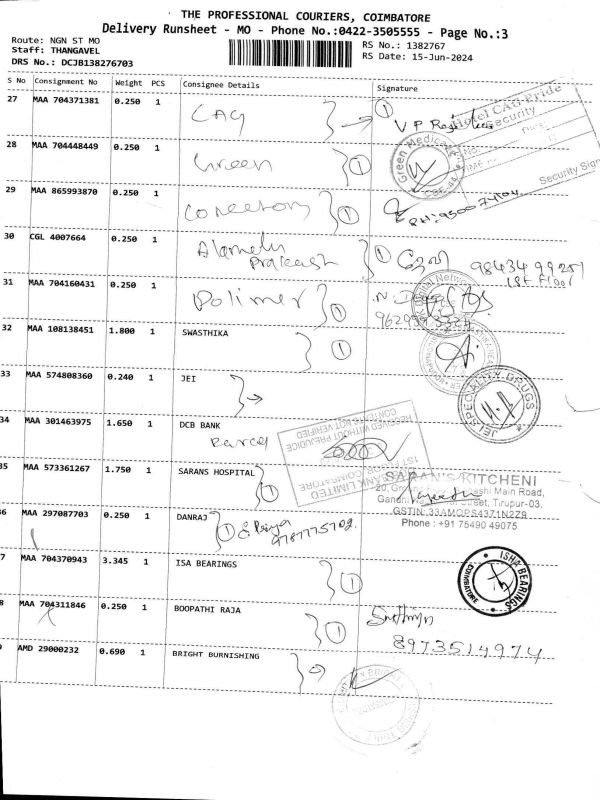 THE PROFESSIONAL COURIERS, COIMBATORE
Delivery Runsheet - MO - Phone No.:0422-3505555 - Page No.:3
Route: NGN ST MO
Staff: THANGAVEL
DRS No.: DCJB138276703
RS No.: 1382767
RS Date: 15-Jun-2024
S No Consignment No Weight PCS Consignee Details Signature
27 MAA 704371381 0.250 1 CAG 1
Hotel CAG Pride
Security
Security Sign
28 MAA 704448449 0.250 1 Green 1
Green Medical
29 MAA 865993870 0.250 1 1
30 CGL 4007664 0.250 1 Alamelu Prakash 1 98434 99251
1st Floor
31 MAA 704160431 0.250 1 Polimer 1
32 MAA 108138451 1.800 1 SWASTHIKA 1
33 MAA 574808360 0.240 1 JEI
JEI SPECIALITY DRUGS
34 MAA 301463975 1.650 1 DCB BANK
RECEIVED WITHOUT PREJUDICE
CONTENTS NOT VERIFIED
BANK LIMITED
COIMBATORE
35 MAA 573361267 1.750 1 SARANS HOSPITAL 1
SARAN'S KITCHENI
Main Road,
Street, Tirupur-03.
GSTIN:33AMOPS4371N2Z9
Phone : +91 75490 49075
36 MAA 297087703 0.250 1 DANRAJ 1
7 MAA 704370943 3.345 1 ISA BEARINGS 1
ISHA BEARINGS
COIMBATORE
8 MAA 704311846 0.250 1 BOOPATHI RAJA 1
8973514974
AMD 29000232 0.690 1 BRIGHT BURNISHING